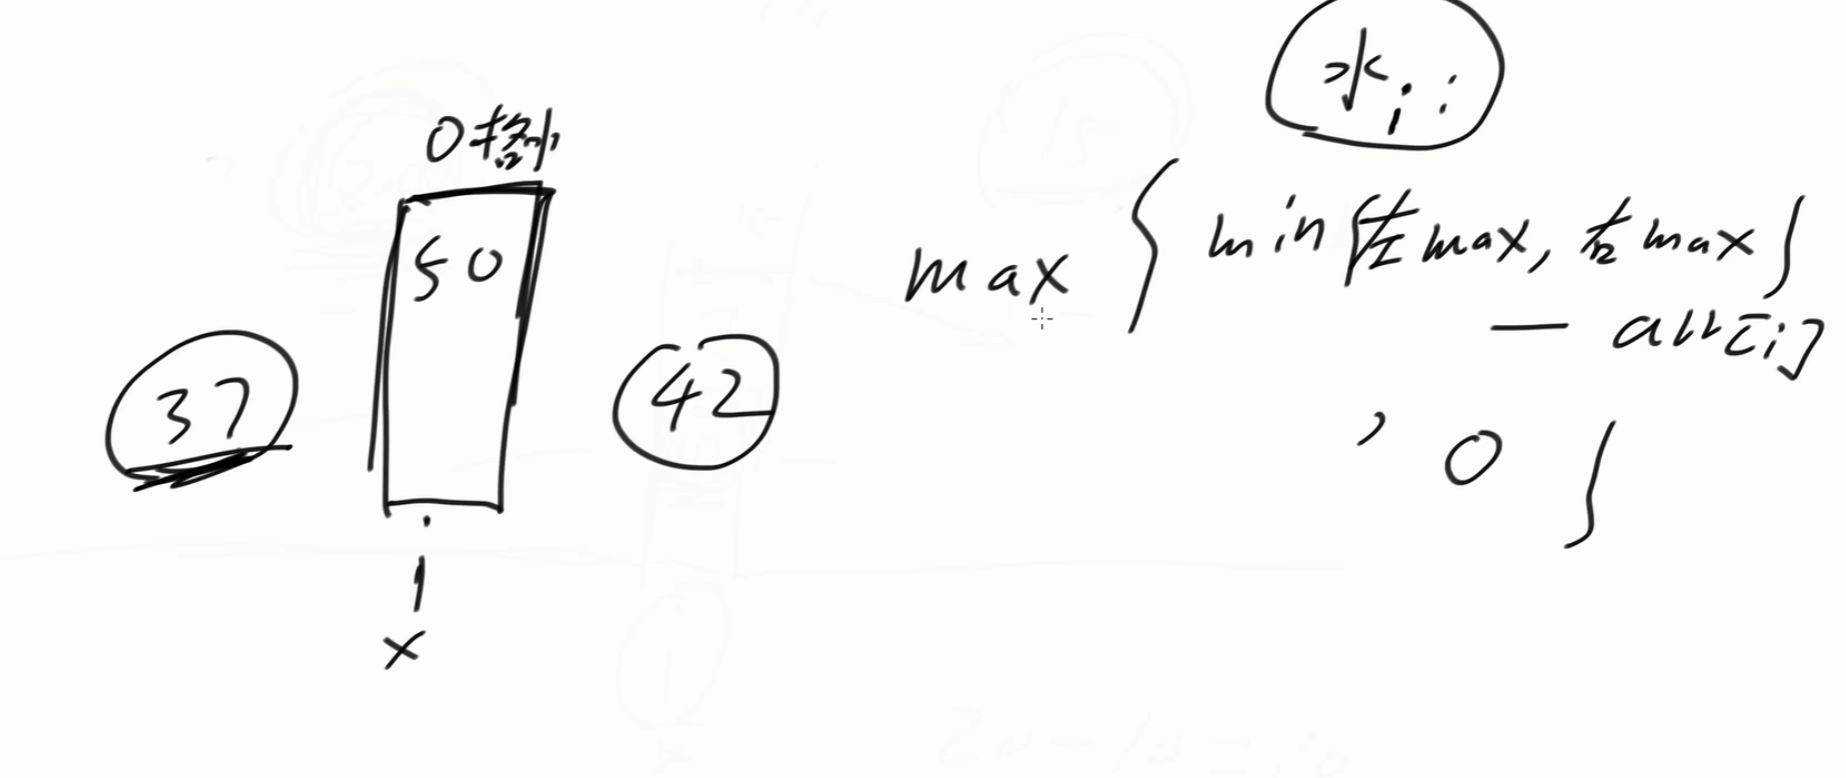 0格
50
37
42
i
x
水i:
max { min{左max, 右max}
- arr[i]
, 0 }